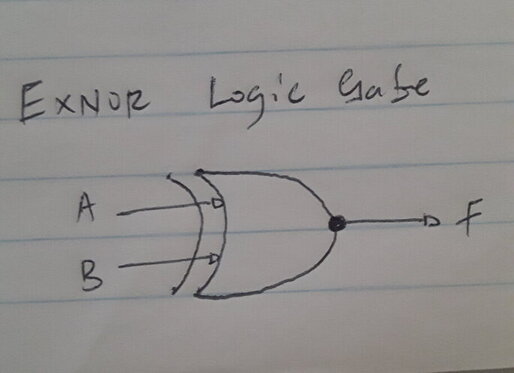 EXNOR Logic Gate
A
F
B